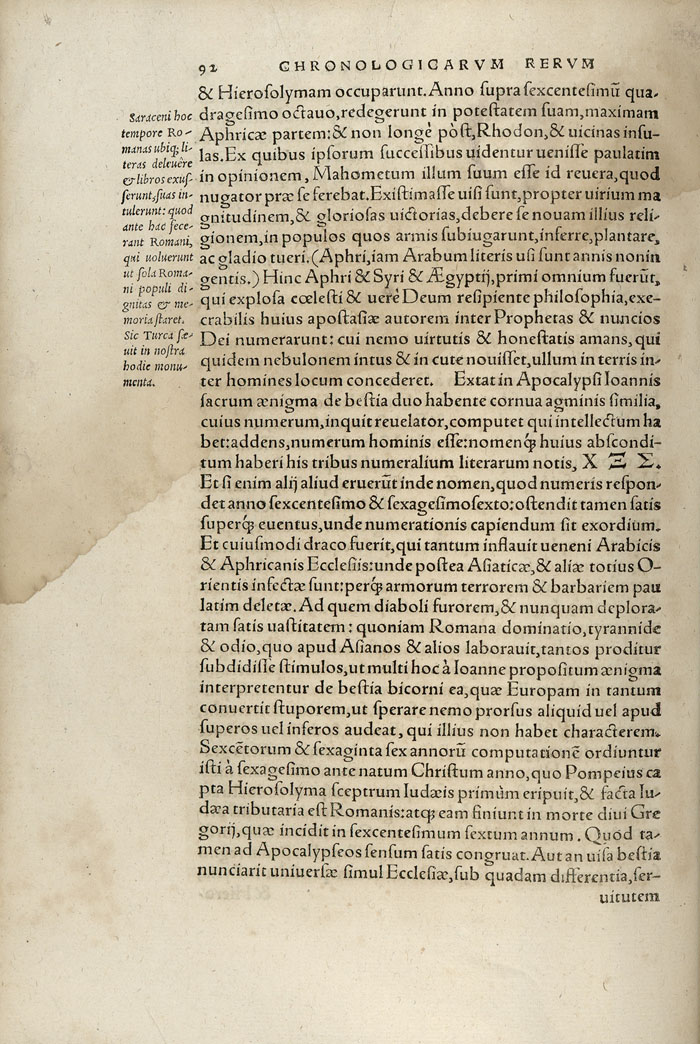 92 CHRONOLOGICARVM RERVM
& Hierosolymam occuparunt. Anno supra sexcentesimũ qua-
dragesimo octauo, redegerunt in potestatem suam, maximam
Aphricæ partem: & non longè pòst, Rhodon, & uicinas insu-
las. Ex quibus ipsorum successibus uidentur uenisse paulatim
in opinionem, Mahometum illum suum esse id reuera, quod
nugator præ se ferebat. Existimasse uisi sunt, propter uirium ma
gnitudinem, & gloriosas uictorias, debere se nouam illius reli-
gionem, in populos quos armis subiugarunt, inferre, plantare,
ac gladio tueri. (Aphri, iam Arabum literis usi sunt annis nonin
gentis.) Hinc Aphri & Syri & Ægyptij, primi omnium fuerũt,
qui explosa cœlesti & uerè Deum resipiente philosophia, exe-
crabilis huius apostasiæ autorem inter Prophetas & nuncios
Dei numerarunt: cui nemo uirtutis & honestatis amans, qui
quidem nebulonem intus & in cute nouisset, ullum in terris in-
ter homines locum concederet. Extat in Apocalypsi Ioannis
sacrum ænigma de bestia duo habente cornua agminis similia,
cuius numerum, inquit reuelator, computet qui intellectum ha
bet: addens, numerum hominis esse: nomenq́; huius abscondi-
tum haberi his tribus numeralium literarum notis, Χ Ξ Σ.
Et si enim alij aliud eruerũt inde nomen, quod numeris respon-
det anno sexcentesimo & sexagesimosexto: ostendit tamen satis
superq́; euentus, unde numerationis capiendum sit exordium.
Et cuiusmodi draco fuerit, qui tantum inflauit ueneni Arabicis
& Aphricanis Ecclesiis: unde postea Asiaticæ, & aliæ totius O-
rientis infectæ sunt: perq́; armorum terrorem & barbariem pau
latim deletæ. Ad quem diaboli furorem, & nunquam deplora-
tam satis uastitatem: quoniam Romana dominatio, tyrannide
& odio, quo apud Asianos & alios laborauit, tantos proditur
subdidisse stimulos, ut multi hoc à Ioanne propositum ænigma
interpretentur de bestia bicorni ea, quæ Europam in tantum
conuertit stuporem, ut sperare nemo prorsus aliquid uel apud
superos uel inferos audeat, qui illius non habet characterem.
Sexcẽtorum & sexaginta sex annorũ computationẽ ordiuntur
isti à sexagesimo ante natum Christum anno, quo Pompeius ca
pta Hierosolyma sceptrum Iudæis primùm eripuit, & facta Iu-
dæa tributaria est Romanis: atq; eam finiunt in morte diui Gre
gorij, quæ incidit in sexcentesimum sextum annum. Quòd ta-
men ad Apocalypseos sensum satis congruat. Aut an uisa bestia
nunciarit uniuersæ simul Ecclesiæ, sub quadam differentia, ser-
uitutem
Saraceni hoc
tempore Ro-
manas ubiq; li-
teras deleuere
& libros exus-
serunt, suas in-
tulerunt: quod
ante hac fece-
rant Romani,
qui uoluerunt
ut sola Roma-
ni populi di-
gnitas & me-
moria staret.
Sic Turca sæ-
uit in nostra
hodie monu-
menta.